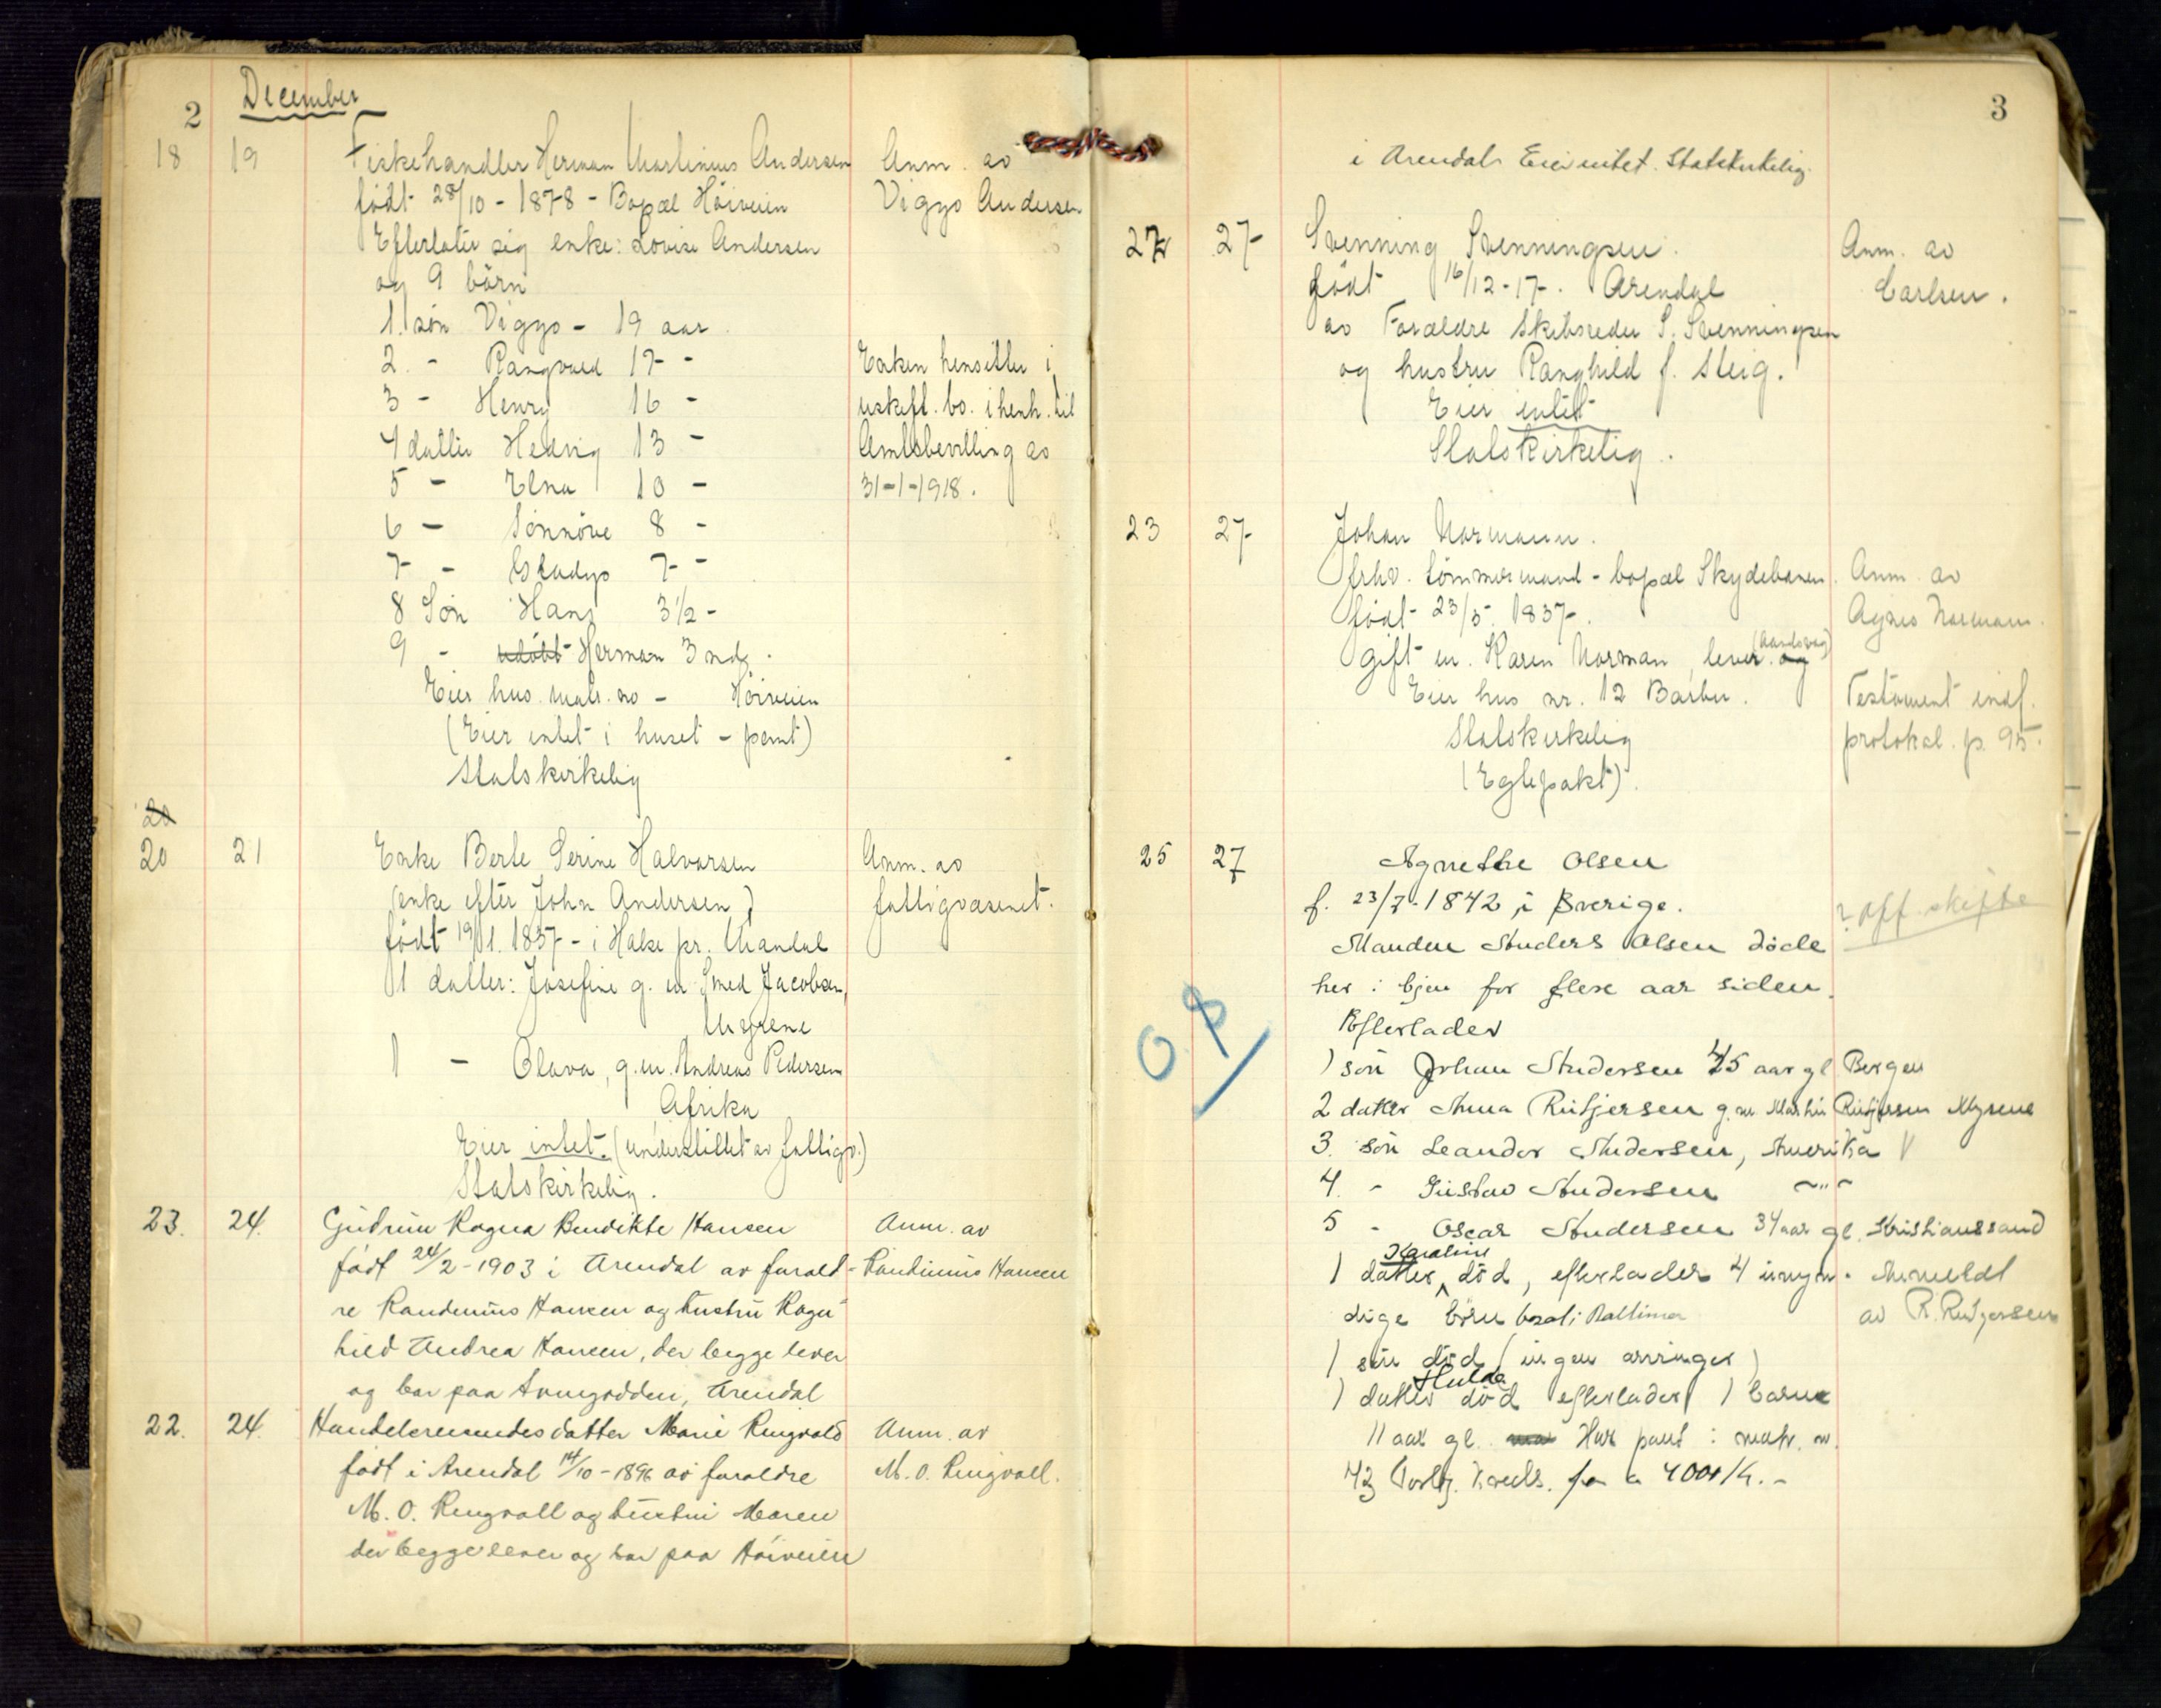 2
December
18 19 Fiskehandler Herman Martinius Andersen Anm. av
født 28/10 - 1878 - Bopæl Höiveien Viggo Andersen
Efterlater sig enke: Lovise Andersen
og 9 börn
1. sön Viggo - 19 aar
2. - Rangvald 17 - Enken hensitter i
3 - Henry 16 - uskift. bo. i henh. til
4 datter Hedvig 13 - Amtsbevilling av
5 - Elna 10 - 31-1-1918.
6 - Sönnöve 8 -
7 - Gladys 7 -
8 Sön Hans 3½ -
9 - udöbt Herman 3 md.
Eier hus matr. no - Höiveien
(Eier intet i huset - pant)
Statskirkelig
20
20 21 Enke Berte Serine Halvorsen Anm. av
(enke efter John Andersen) fattigvæsenet.
født 19/1. 1837 - i Hake pr. Mandal
1 datter: Josefine g. m Smed Jacobsen,
Myrene
1 - Olava, g.m. Andreas Pedersen
Afrika
Eier intet. (understöttet av fattigv.)
Statskirkelig.
23. 24. Gudrun Ragna Bendikte Hansen Anm. av
født 24/2 - 1903 i Arendal av foræld- Randinius Hansen
re Randinius Hansen og hustru Ragn-
hild Andrea Hansen, der begge lever
og bor paa Tangodden, Arendal
22. 24. Handelsreisendes datter Marie Ringvold Anm. av
født i Arendal 14/10 - 1896 av forældre M. O. Ringvoll.
M. O. Ringvoll og hustru Maren
der begge lever og bor paa Höiveien
3
i Arendal. Eier intet. Statskirkelig.
27 27 Svenning Svenningsen. Anm. av
født 16/12 - 17. Arendal Carlsen.
av Forældre Skibsreder S. Svenningsen
og hustru Ranghild f. Steig.
Eier intet
Statskirkelig.
23 27 Johan Normann.
fhv. tömmermand - bopæl Skydebanen. Anm. av
født 23/5. 1837. Agnes Normann.
gift m. Karen Norman, lever. og (aandssv.)
Eier hus nr. 12 Barbu. Testament indf.
Statskirkelig protokol. p. 95.
(Egtepakt).
25 27 Agnethe Olsen
f. 23/7 - 1842 i Sverige. ? off. skifte
Manden Anders Olsen döde
her i byen for flere aar siden.
Efterlader
O P
1 sön Johan Andersen 45 aar gl Bergen
2 datter Anna Rütjersen g. m. Martin Rütjersen Myrene
3. sön Leander Andersen, Amerika
4. - Gustav Andersen -"-
5 - Oscar Andersen 34 aar gl. Kristianssand
Karoline
1 datter, död, efterlader 4 umyn- Anmeldt
dige börn bosat i Baltimor av R. Rütjersen
1 sön död (ingen arvinger)
Hulda
1 datter död efterlader 1 barn
11 aar gl. Har pant i matr. nr.
43 for a 4000 Kr. -